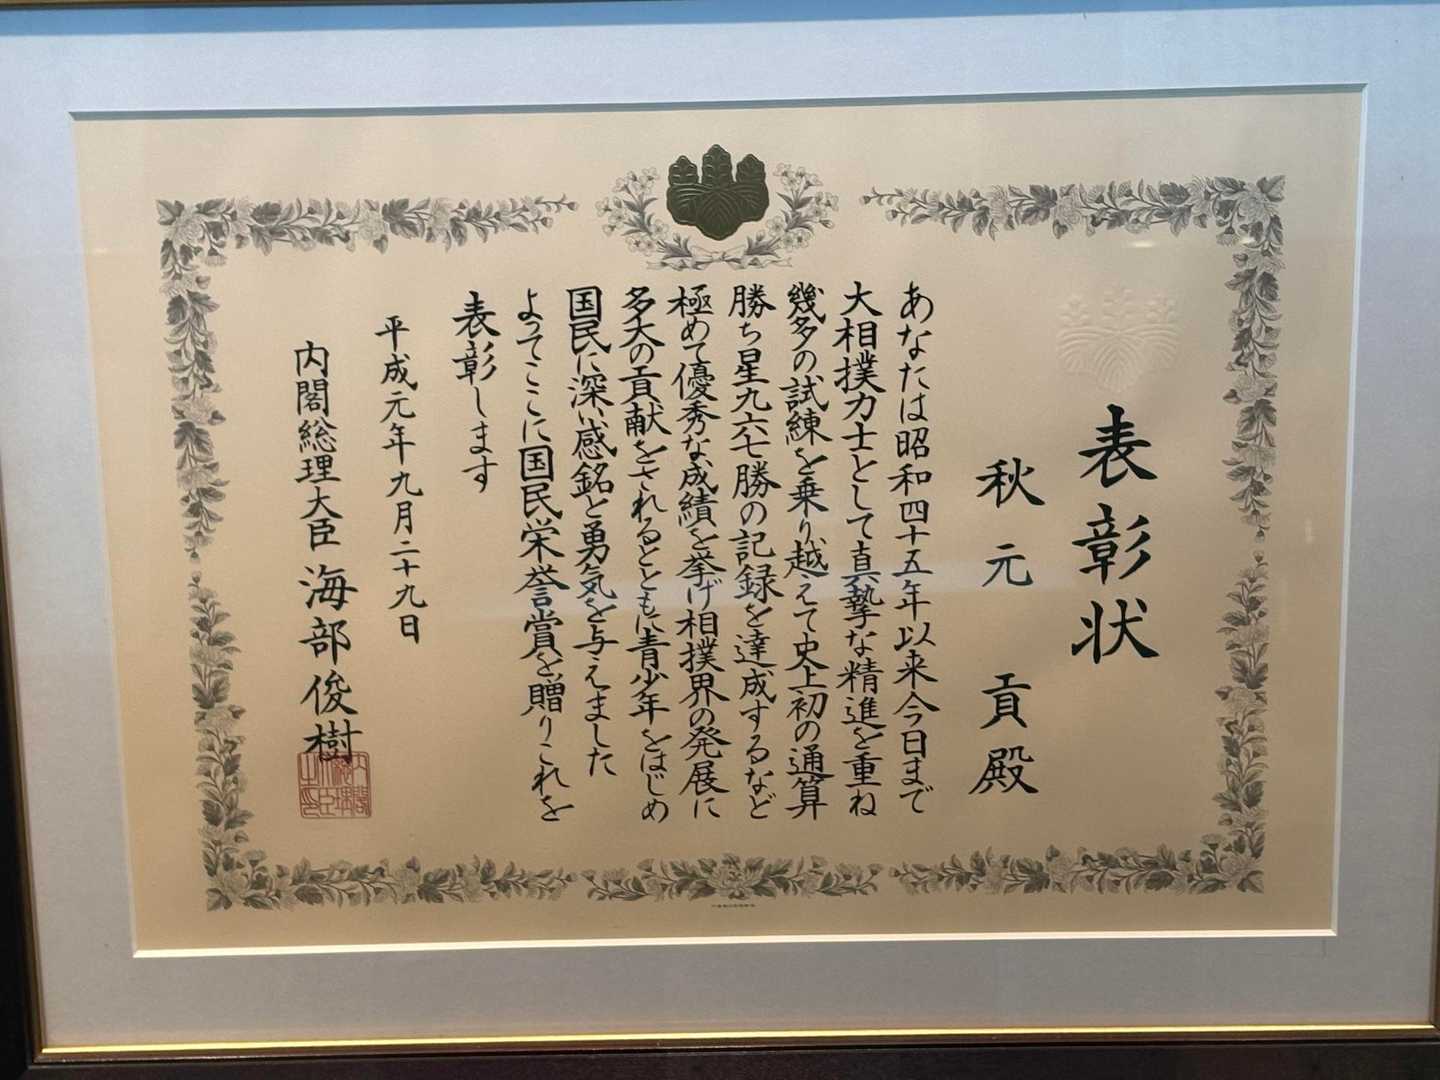 表彰状
秋元 貢殿
あなたは昭和四十五年以来今日まで
大相撲力士として真摯な精進を重ね
幾多の試練を乗り越えて史上初の通算
勝ち星九六七勝の記録を達成するなど
極めて優秀な成績を挙げ相撲界の発展に
多大の貢献をされるとともに青少年をはじめ
国民に深い感銘と勇気を与えました
よってここに国民栄誉賞を贈りこれを
表彰します
平成元年九月二十九日
内閣総理大臣 海部俊樹